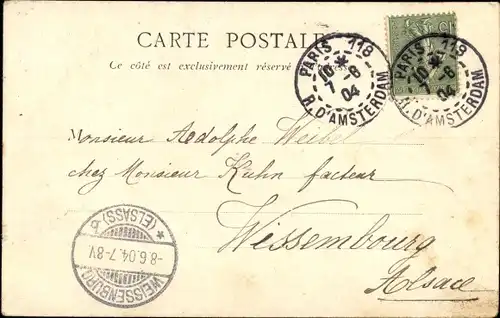 CARTE POSTALE
Ce côté est exclusivement réservé
PARIS 118
10 *
7 - 6
04
R. D'AMSTERDAM
PARIS 118
10 *
7 - 6
04
R. D'AMSTERDAM
Monsieur Adolphe Weibel
chez Monsieur Kuhn facteur
Wissembourg
Alsace
WEISSENBURG
-8.6.04.7-8V.
* (ELSASS) b